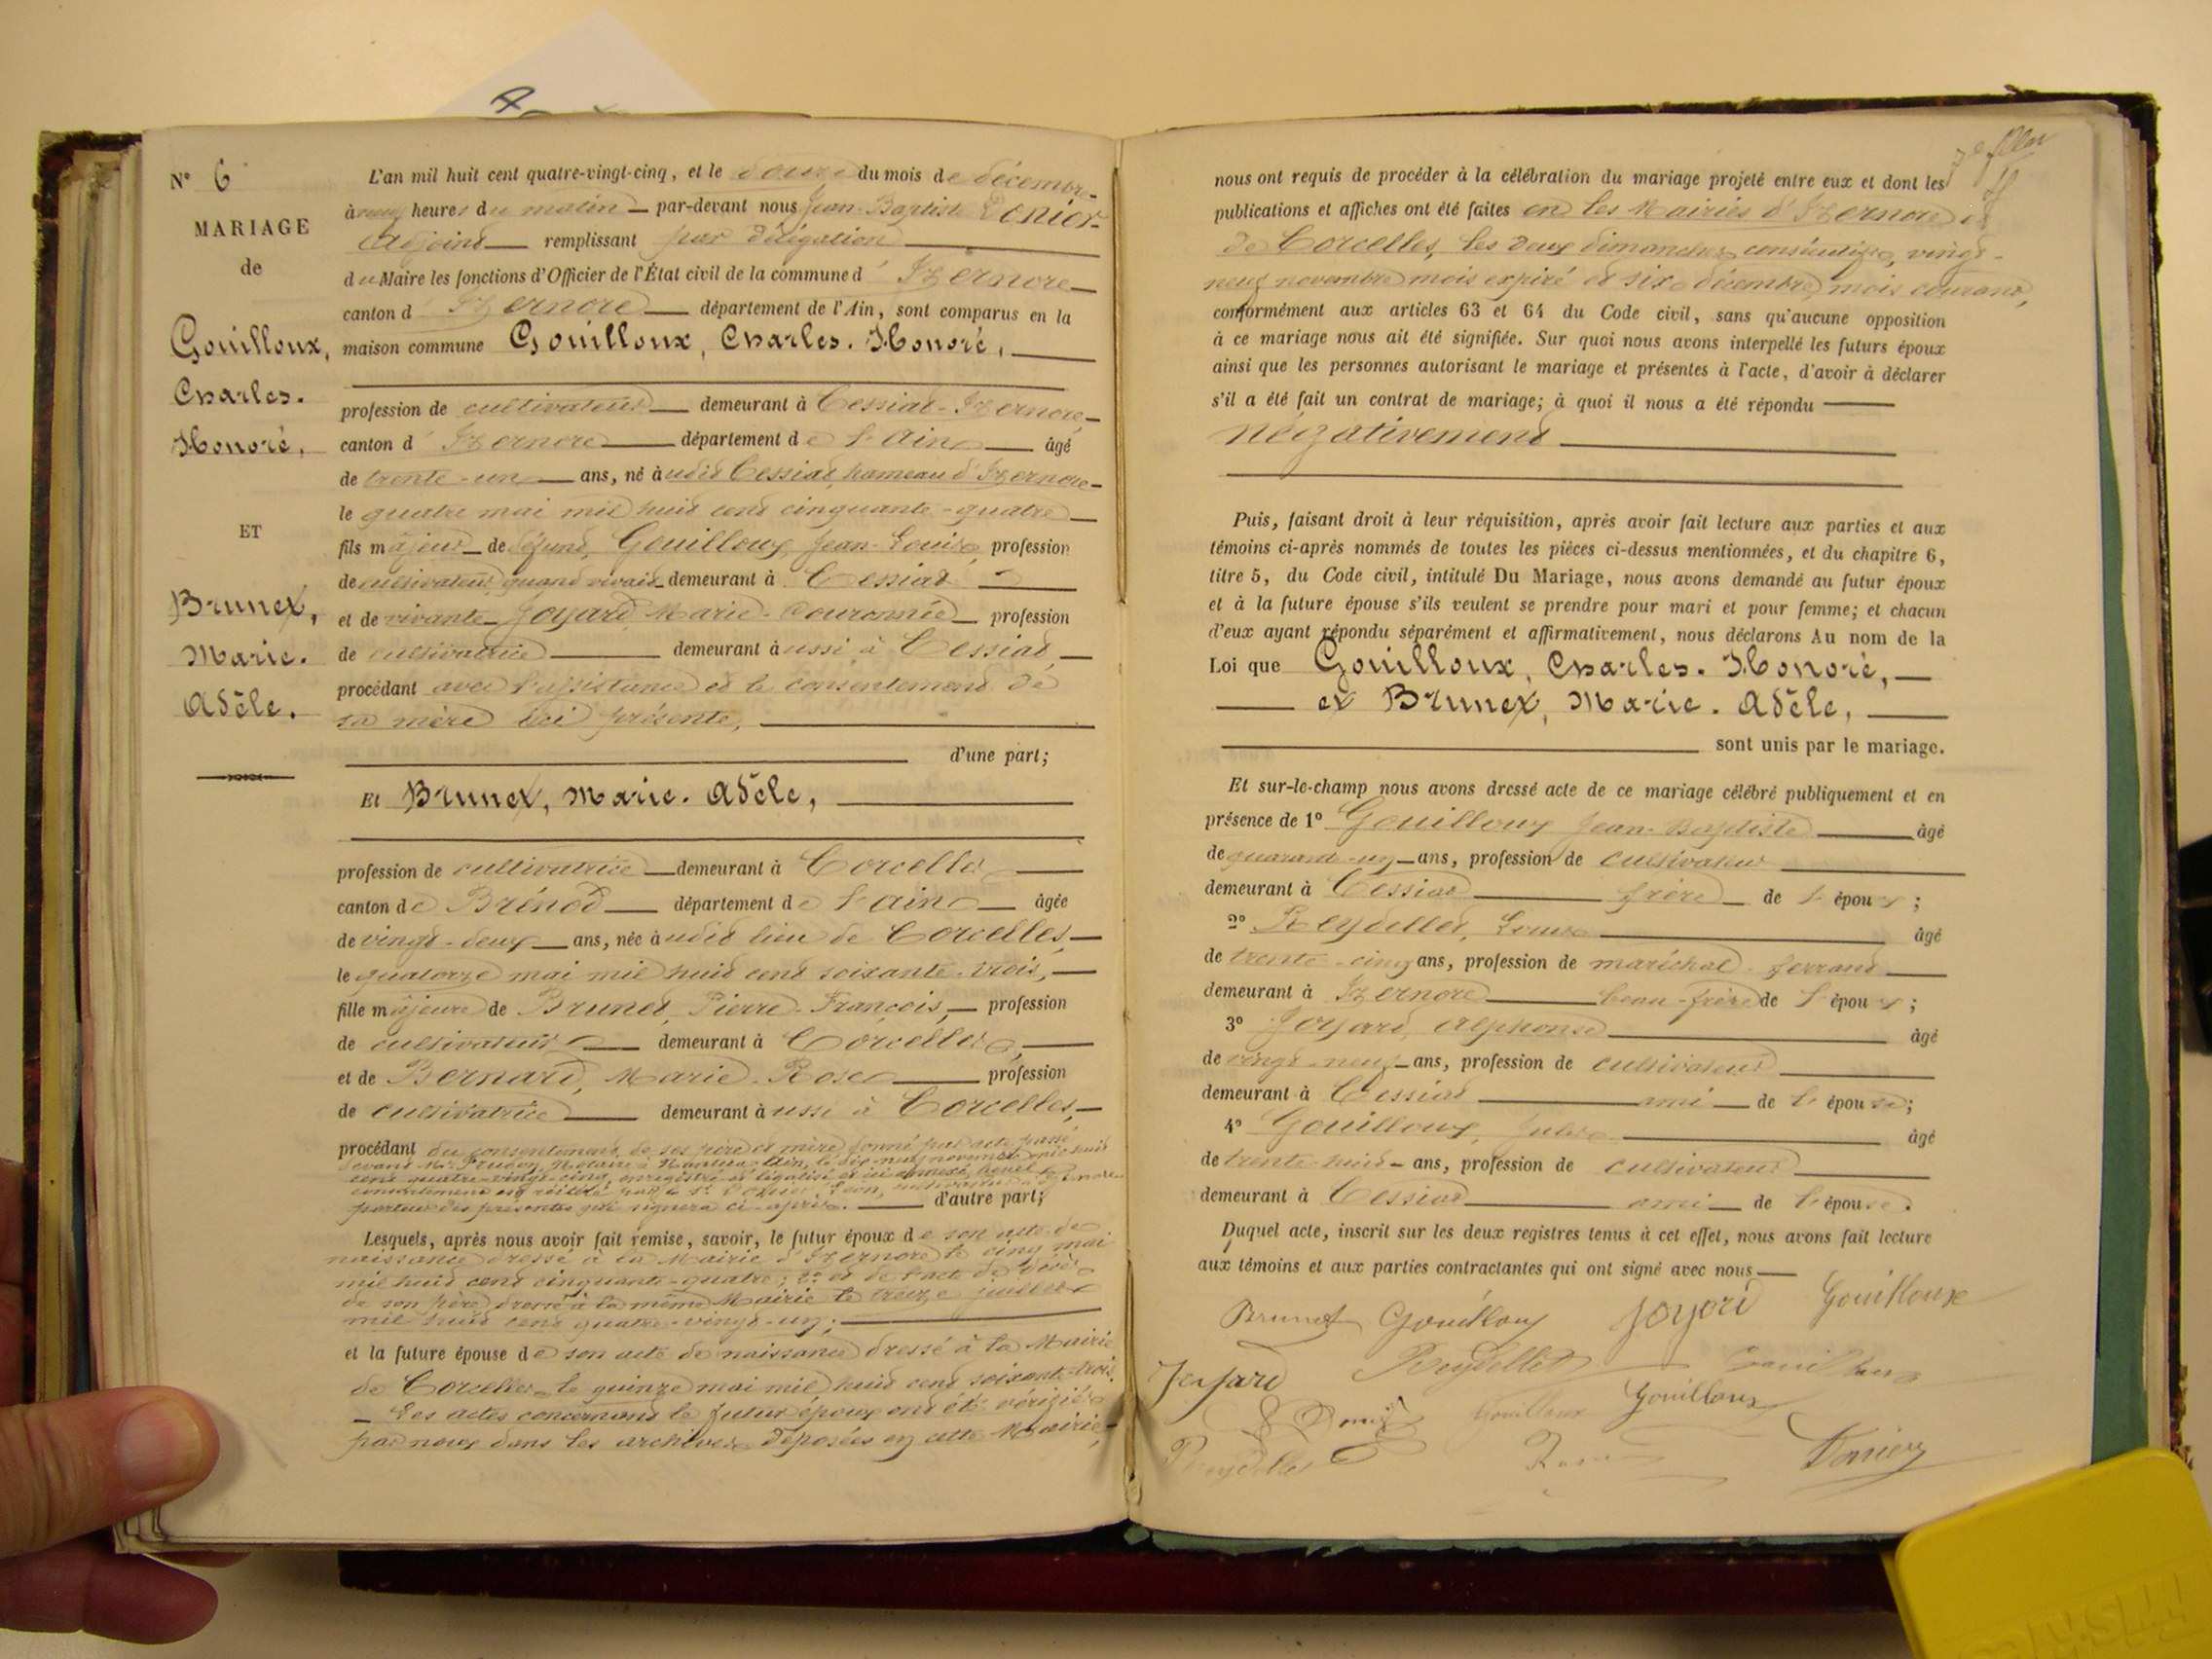 N° 6
MARIAGE
de
Gouilloux,
Charles.
Honoré,
ET
Brunet,
Marie.
Adèle.
L'an mil huit cent quatre-vingt-cinq, et le douze du mois de décembre
à neuf heures du matin par-devant nous Jean-Baptiste
Adjoint remplissant par délégation
du Maire les fonctions d'Officier de l'État civil de la commune d'Izernore
canton d'Izernore département de l'Ain, sont comparus en la
maison commune Gouilloux, Charles. Honoré,
profession de cultivateur demeurant à Cessiat-Izernore,
canton d'Izernore département de l'Ain âgé
de trente-un ans, né audit Cessiat, hameau d'Izernore
le quatre mai mil huit cent cinquante-quatre
fils majeur de défunt, Gouilloux Jean-Louis, profession
de cultivateur quand vivait demeurant à Cessiat
et de vivante Joyard Marie-Couronnée profession
de cultivatrice demeurant aussi à Cessiat,
procédant avec l'assistance et le consentement de
sa mère ici présente,
d'une part;
Et Brunet, Marie. Adèle,
profession de cultivatrice demeurant à Corcelles
canton de Brénod département de l'Ain âgée
de vingt-deux ans, née audit lieu de Corcelles,
le quatorze mai mil huit cent soixante-trois,
fille majeure de Brunet, Pierre-François, profession
de cultivateur demeurant à Corcelles,
et de Bernard, Marie-Rose profession
de cultivatrice demeurant aussi à Corcelles,
procédant du consentement de ses père et mère donné par acte passé
devant Me Notaire à Nantua Ain, le dix-neuf novembre mil huit
cent quatre-vingt-cinq, enregistré et légalisé et ici annexé, lequel
consentement est par le Sr Léon, cultivateur à Izernore
porteur des présentes qui signera ci-après. d'autre part;
Lesquels, après nous avoir fait remise, savoir, le futur époux de son acte de
naissance dressé à la Mairie d'Izernore le cinq mai
mil huit cent cinquante-quatre; 2° et de l'acte de décès
de son père dressé à la même Mairie le treize juillet
mil huit cent quatre-vingt-un;
et la future épouse de son acte de naissance dressé à la Mairie
de Corcelles le quinze mai mil huit cent soixante-trois.
Les actes concernant le futur époux ont été vérifiés
par nous dans les archives déposées en cette Mairie,
nous ont requis de procéder à la célébration du mariage projeté entre eux et dont les
publications et affiches ont été faites en les Mairies d'Izernore et
de Corcelles, les deux dimanches consécutifs, vingt-
neuf novembre mois expiré et six décembre mois courant,
conformément aux articles 63 et 64 du Code civil, sans qu'aucune opposition
à ce mariage nous ait été signifiée. Sur quoi nous avons interpellé les futurs époux
ainsi que les personnes autorisant le mariage et présentes à l'acte, d'avoir à déclarer
s'il a été fait un contrat de mariage; à quoi il nous a été répondu
négativement
Puis, faisant droit à leur réquisition, après avoir fait lecture aux parties et aux
témoins ci-après nommés de toutes les pièces ci-dessus mentionnées, et du chapitre 6,
titre 5, du Code civil, intitulé Du Mariage, nous avons demandé au futur époux
et à la future épouse s'ils veulent se prendre pour mari et pour femme; et chacun
d'eux ayant répondu séparément et affirmativement, nous déclarons Au nom de la
Loi que Gouilloux, Charles. Honoré,
et Brunet, Marie. Adèle,
sont unis par le mariage.
Et sur-le-champ nous avons dressé acte de ce mariage célébré publiquement et en
présence de 1° Gouilloux Jean-Baptiste âgé
de quarante-un ans, profession de cultivateur
demeurant à Cessiat frère de l'époux;
2° Reydellet, Louis âgé
de trente-cinq ans, profession de maréchal-ferrant
demeurant à Izernore beau-frère de l'époux;
3° Joyard, Alphonse âgé
de vingt-neuf ans, profession de cultivateur
demeurant à Cessiat ami de l'épouse;
4° Gouilloux, Jules âgé
de trente-huit ans, profession de cultivateur
demeurant à Cessiat ami de l'épouse.
Duquel acte, inscrit sur les deux registres tenus à cet effet, nous avons fait lecture
aux témoins et aux parties contractantes qui ont signé avec nous
Brunet Gouilloux Joyard Gouilloux
Joyard Reydellet Gouilloux
Gouilloux Gouilloux
Reydellet